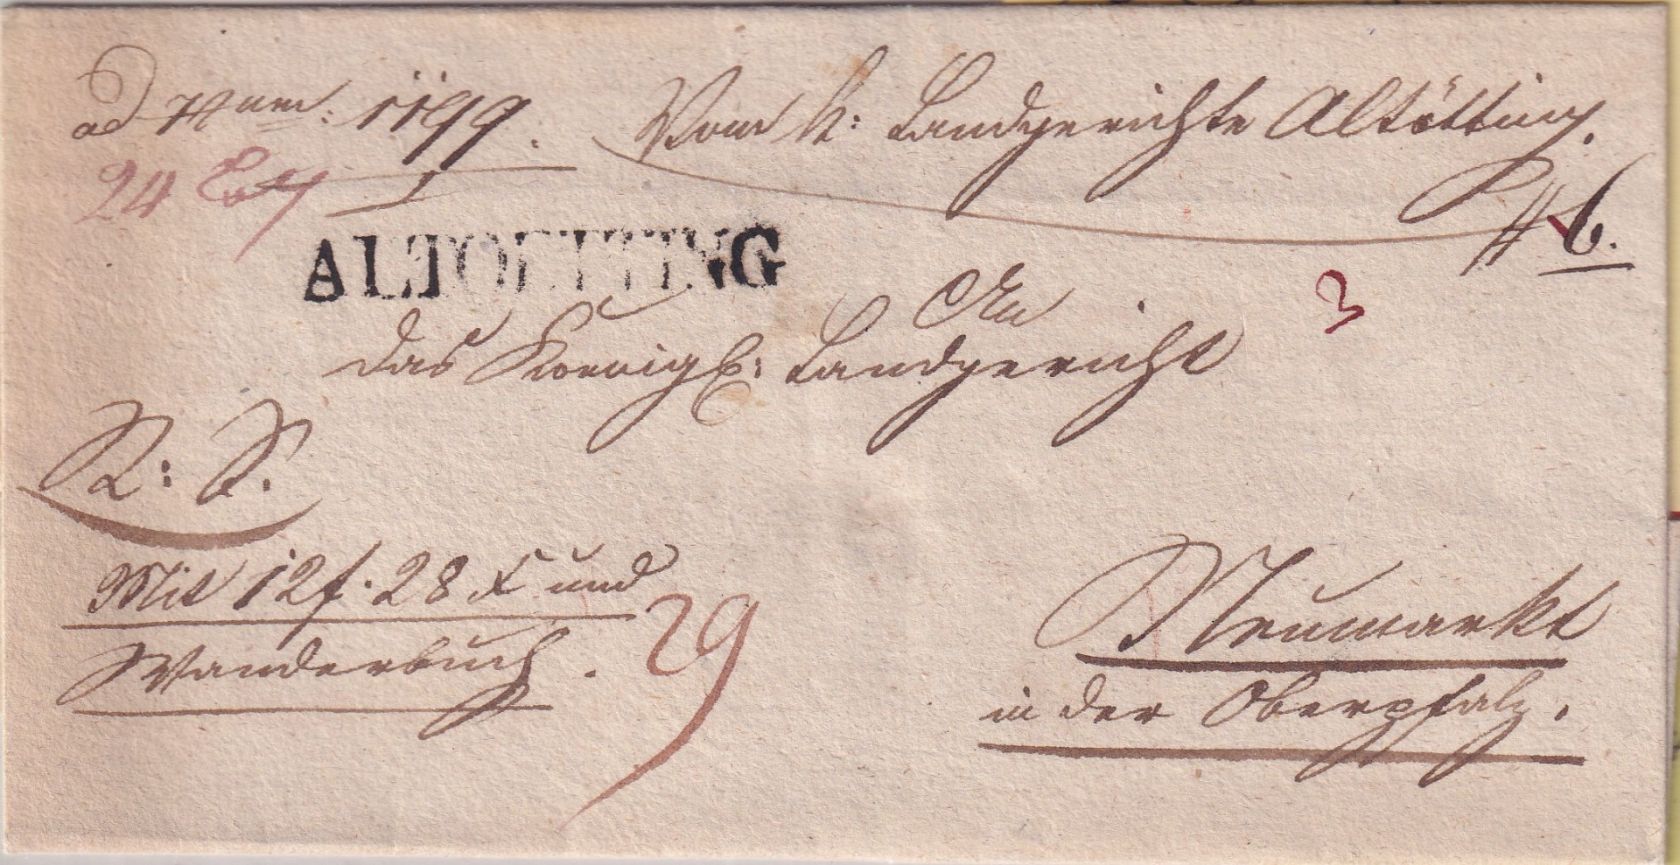 ad Num: 1199. Vom k: Landgerichte Altötting.
24
6.
ALTOETTING
3
An
das Koenigl: Landgericht
R: S.
Mit 12 f. 28 x und
Wanderbuch.
29
Neumarkt
in der Oberpfalz.